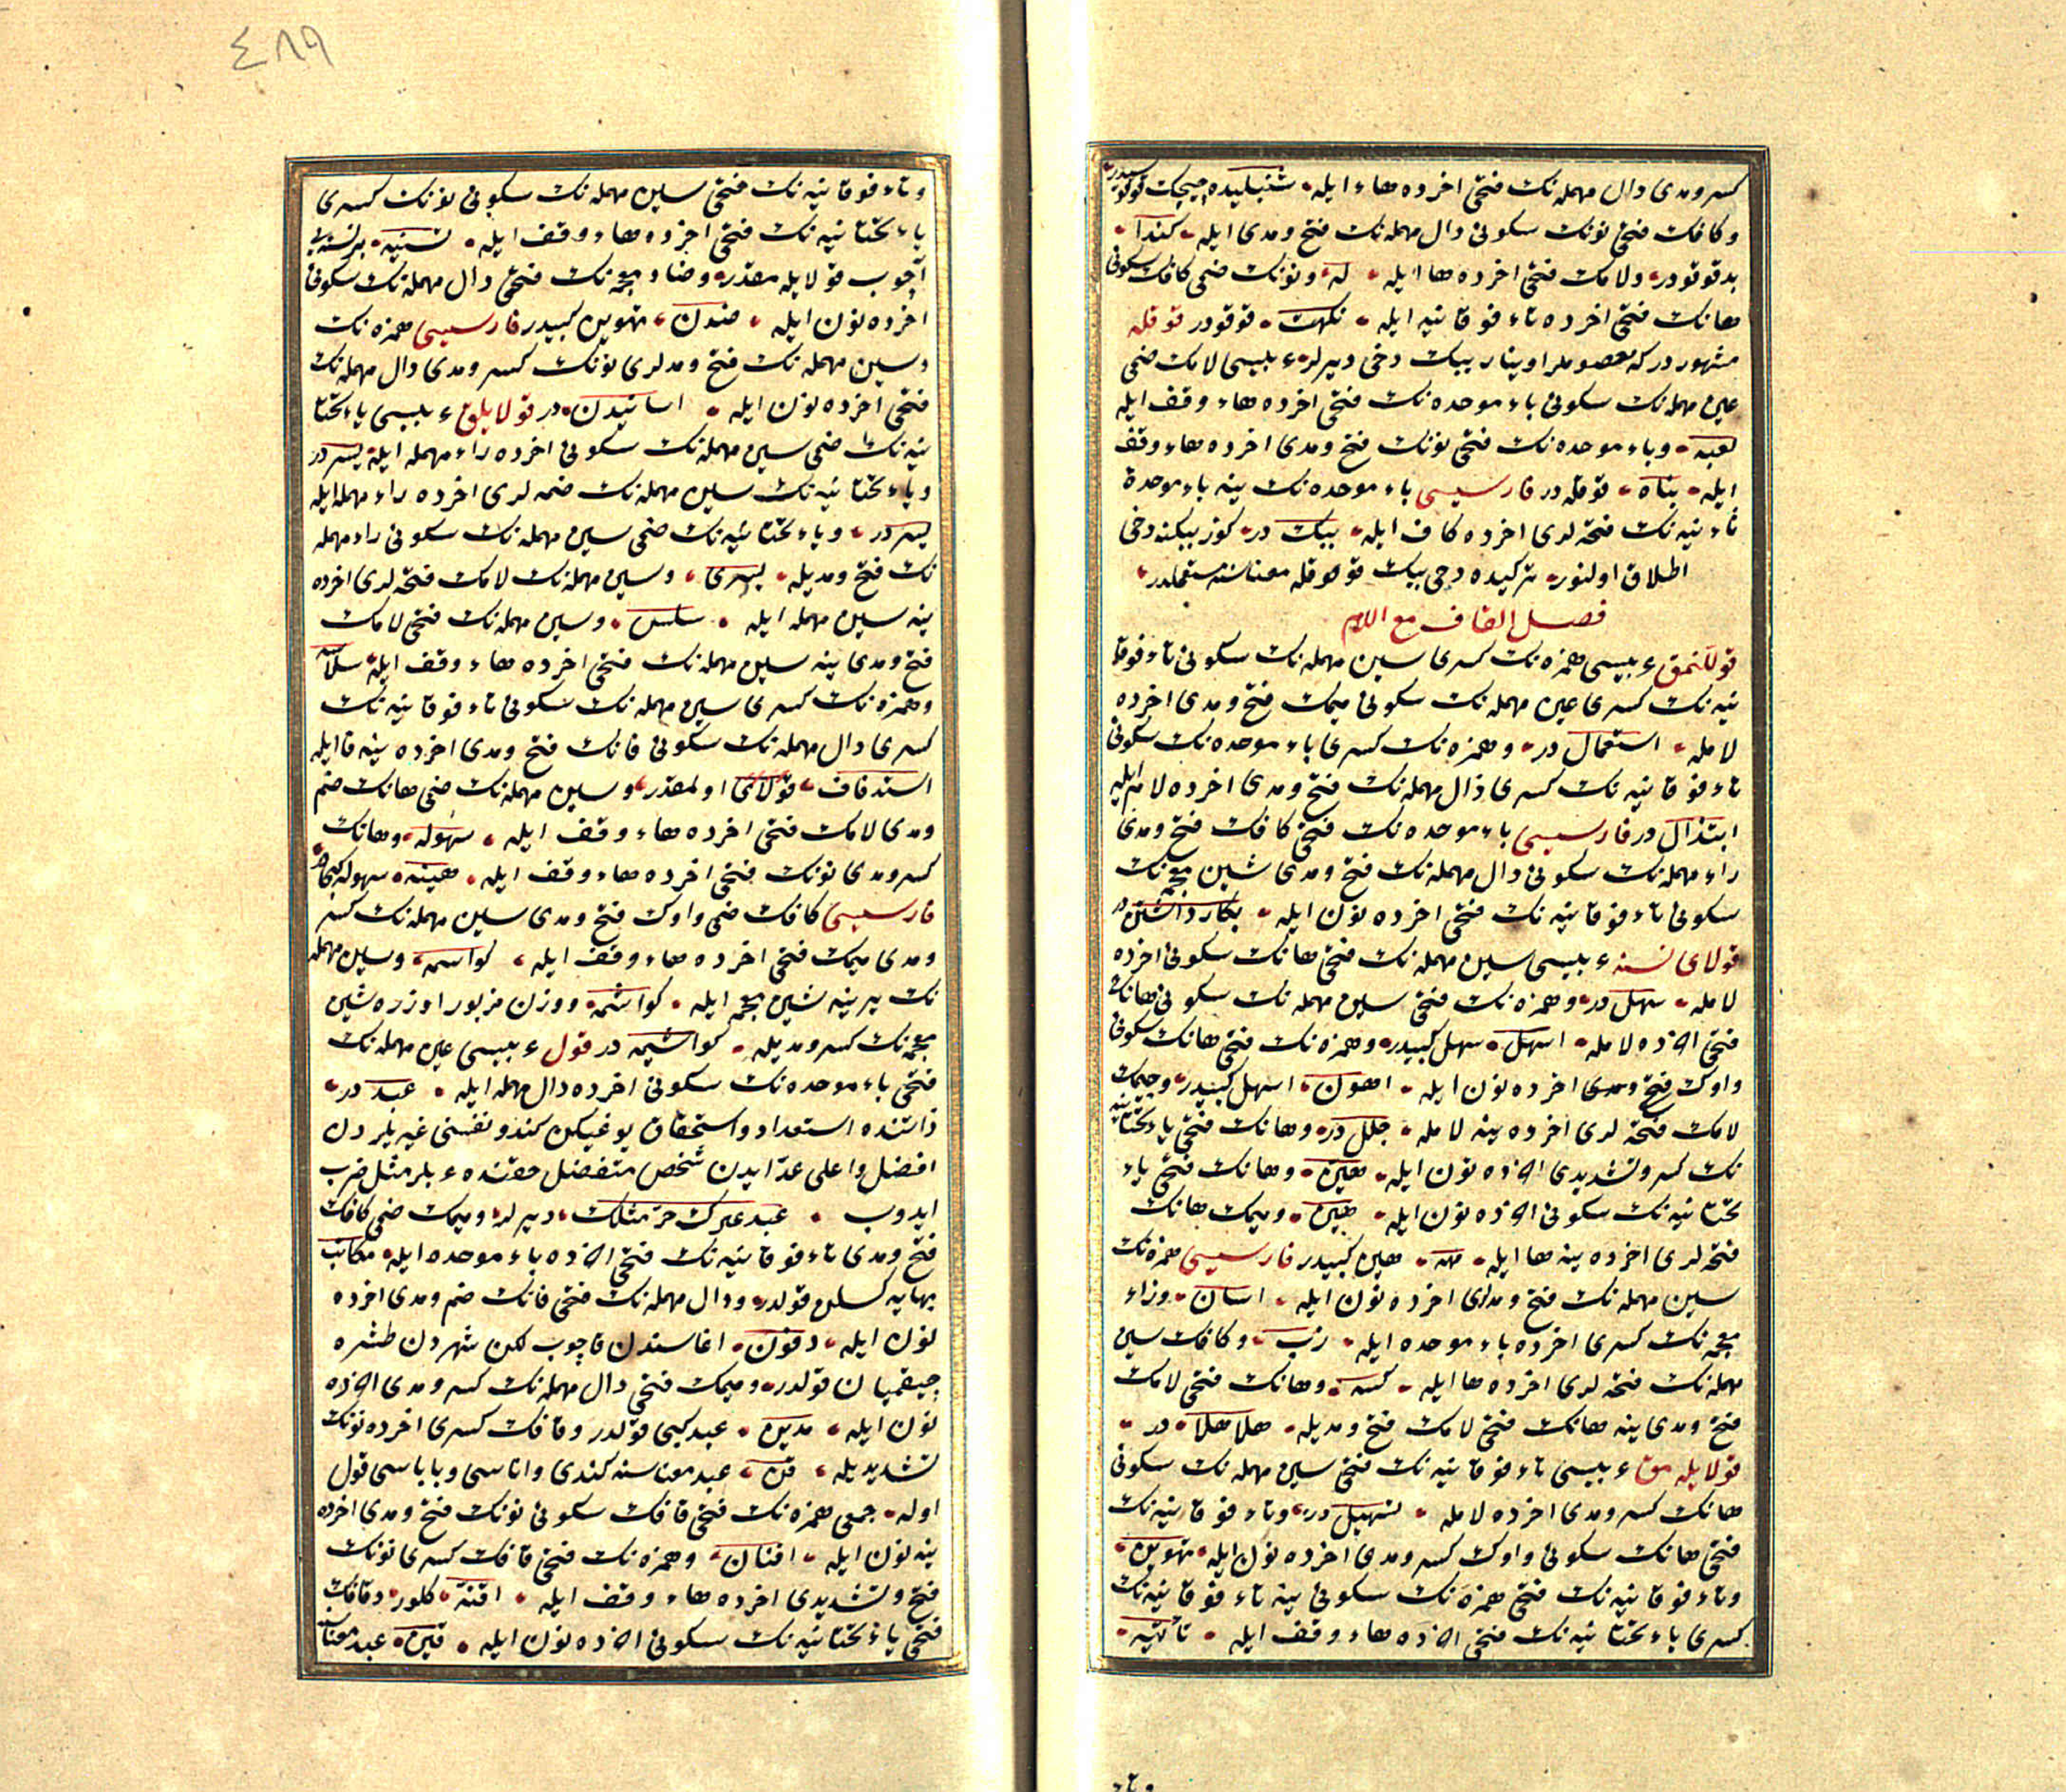 كسر و مدى دال مهمله نك فتحى اخرده هاء ايله شنبليده چيچك قوقوسيدر
و كافك فتحى نونك سكونى دال مهمله نك فتح و مدى ايله كندا
بد قوقودر ولامك فتحى اخرده ها ايله له و نونك ضمى كافك سكونى
هانك فتحى اخرده تاء فوقانيه ايله نكهت قوقودر قوقله
مشهور دركه معصوملر اوينار ببك دخى ديرلر عربيسى لامك ضمى
عين مهمله نك سكونى باء موحده نك فتحى اخرده هاء وقف ايله
لعبه وباء موحده نك فتحى نونك فتح و مدى اخرده هاء وقف
ايله بناه قوقله در فارسيسى باء موحده نك ينه باء موحدة
ثانيه نك فتحه لرى اخرده كاف ايله ببك در كوز ببكنه دخى
اطلاق اولنور تركيده دخى ببك قوقله معناسنه مستعملدر
فصل القاف مع اللام
قوللنمق عربيسى همزه نك كسرى سين مهمله نك سكونى تاء فوقا
نيه نك كسرى عين مهمله نك سكونى ميمك فتح و مدى اخرده
لامله استعمال در وهمزه نك كسرى باء موحده نك سكونى
تاء فوقانيه نك كسرى ذال مهمله نك فتح و مدى اخرده لام ايله
ابتذال در فارسيسى باء موحده نك فتحى كافك فتح و مدى
راء مهمله نك سكونى دال مهمله نك فتح و مدى شين معجمه نك
سكونى تاء فوقانيه نك فتحى اخرده نون ايله بكار داشتن در
قولاى نسنه عربيسى سين مهمله نك فتحى هانك سكونى اخرده
لامله سهل در وهمزه نك فتحى سين مهمله نك سكونى هانك
فتحى اخرده لامله اسهل سهل كبيدر وهمزه نك فتحى هانك سكونى
واوك فتح و مدى اخرده نون ايله اهون اسهل كبيدر وجيمك
لامك فتحه لرى اخرده ينه لامله جلل در وهانك فتحى ياء تحتانيه
نك كسر و تشديدى اخرده نون ايله هين وهانك فتحى ياء
تحتانيه نك سكونى اخرده نون ايله هين وميمك هانك
فتحه لرى اخرده ينه ها ايله مهه هين كبيدر فارسيسى همزه نك
سين مهمله نك فتح و مدلرى اخرده نون ايله اسان وزاء
معجمه نك كسرى اخرده باء موحده ايله زب وكافك سين
مهمله نك فتحه لرى اخرده ها ايله كسه وهانك فتحى لامك
فتح و مدى ينه هانك فتحى لامك فتح و مديله هلا هلا در
قولايله مق عربيسى تاء فوقانيه نك فتحى سين مهمله نك سكونى
هانك كسر و مدى اخرده لامله تسهيل در وتاء فوقانيه نك
فتحى هانك سكونى واوك كسر و مدى اخرده نون ايله تهوين
وتاء فوقانيه نك فتحى همزه نك سكونى ينه تاء فوقانيه نك
كسرى ياء تحتانيه نك فتحى اخرده هاء وقف ايله تأتيه
٤٨٩
وتاء فوقانيه نك فتحى سين مهمله نك سكونى نونك كسرى
ياء تحتانيه نك فتحى اخرده هاء وقف ايله تسنيه بر نسنه يى
آچوب قولايله مقدر وضاد معجمه نك فتحى دال مهمله نك سكونى
اخرده نون ايله ضدن تهوين كبيدر فارسيسى همزه نك
وسين مهمله نك فتح و مدلرى نونك كسر و مدى دال مهمله نك
فتحى اخرده نون ايله اسانيدن در قولايلق عربيسى ياء تحتا
نيه نك ضمى سين مهمله نك سكونى اخرده راء مهمله ايله يسر در
وياء تحتانيه نك سين مهمله نك ضمه لرى اخرده راء مهمله ايله
يسر در وياء تحتانيه نك ضمى سين مهمله نك سكونى راء مهمله
نك فتح و مديله يسرى وسين مهمله نك لامك فتحه لرى اخرده
ينه سين مهمله ايله سلس وسين مهمله نك فتحى لامك
فتح و مدى ينه سين مهمله نك فتحى اخرده هاء وقف ايله سلاسه
وهمزه نك كسرى سين مهمله نك سكونى تاء فوقانيه نك
كسرى دال مهمله نك سكونى فانك فتح و مدى اخرده ينه فا ايله
استدفاف قولاى اولمقدر وسين مهمله نك ضمى هانك ضم
و مدى لامك فتحى اخرده هاء وقف ايله سهوله وهانك
كسر و مدى نونك فتحى اخرده هاء وقف ايله هينه سهوله كبى در
فارسيسى كافك ضمى واوك فتح و مدى سين مهمله نك كسر
و مدى ميمك فتحى اخرده هاء وقف ايله كواسيمه وسين مهمله
نك يرينه شين معجمه ايله كواشمه ووزن مزبور اوزره شين
معجمه نك كسر و مديله كواشيمه در قول عربيسى عين مهمله نك
فتحى باء موحده نك سكونى اخرده دال مهمله ايله عبد در
ذاتنده استعداد واستحقاق يوغيكن كندو نفسنى غيريلردن
افضل واعلى عد ايدن شخص متفضل حقنده عربلر مثل ضرب
ايدوب عبد غيرك حر مثلك ديرلر وميمك ضمى كافك
فتح و مدى تاء فوقانيه نك فتحى اخرده باء موحده ايله مكاتب
بهايه كسلن قولدر ودال مهمله نك فتحى فانك ضم و مدى اخرده
نون ايله دفون اغاسندن قاچوب لكن شهردن طشره
چيقميان قولدر وميمك فتحى دال مهمله نك كسر و مدى اخرده
نون ايله مدين عبد كبى قولدر وقافك كسرى اخرده نونك
تشديديله قن عبد معناسنه كندى واناسى وباباسى قول
اوله جمعى همزه نك فتحى قافك سكونى نونك فتح و مدى اخرده
ينه نون ايله اقنان وهمزه نك فتحى قافك كسرى نونك
فتح و تشديدى اخرده هاء وقف ايله اقنه كلور وقافك
فتحى ياء تحتانيه نك سكونى اخرده نون ايله قين عبد معناسنه